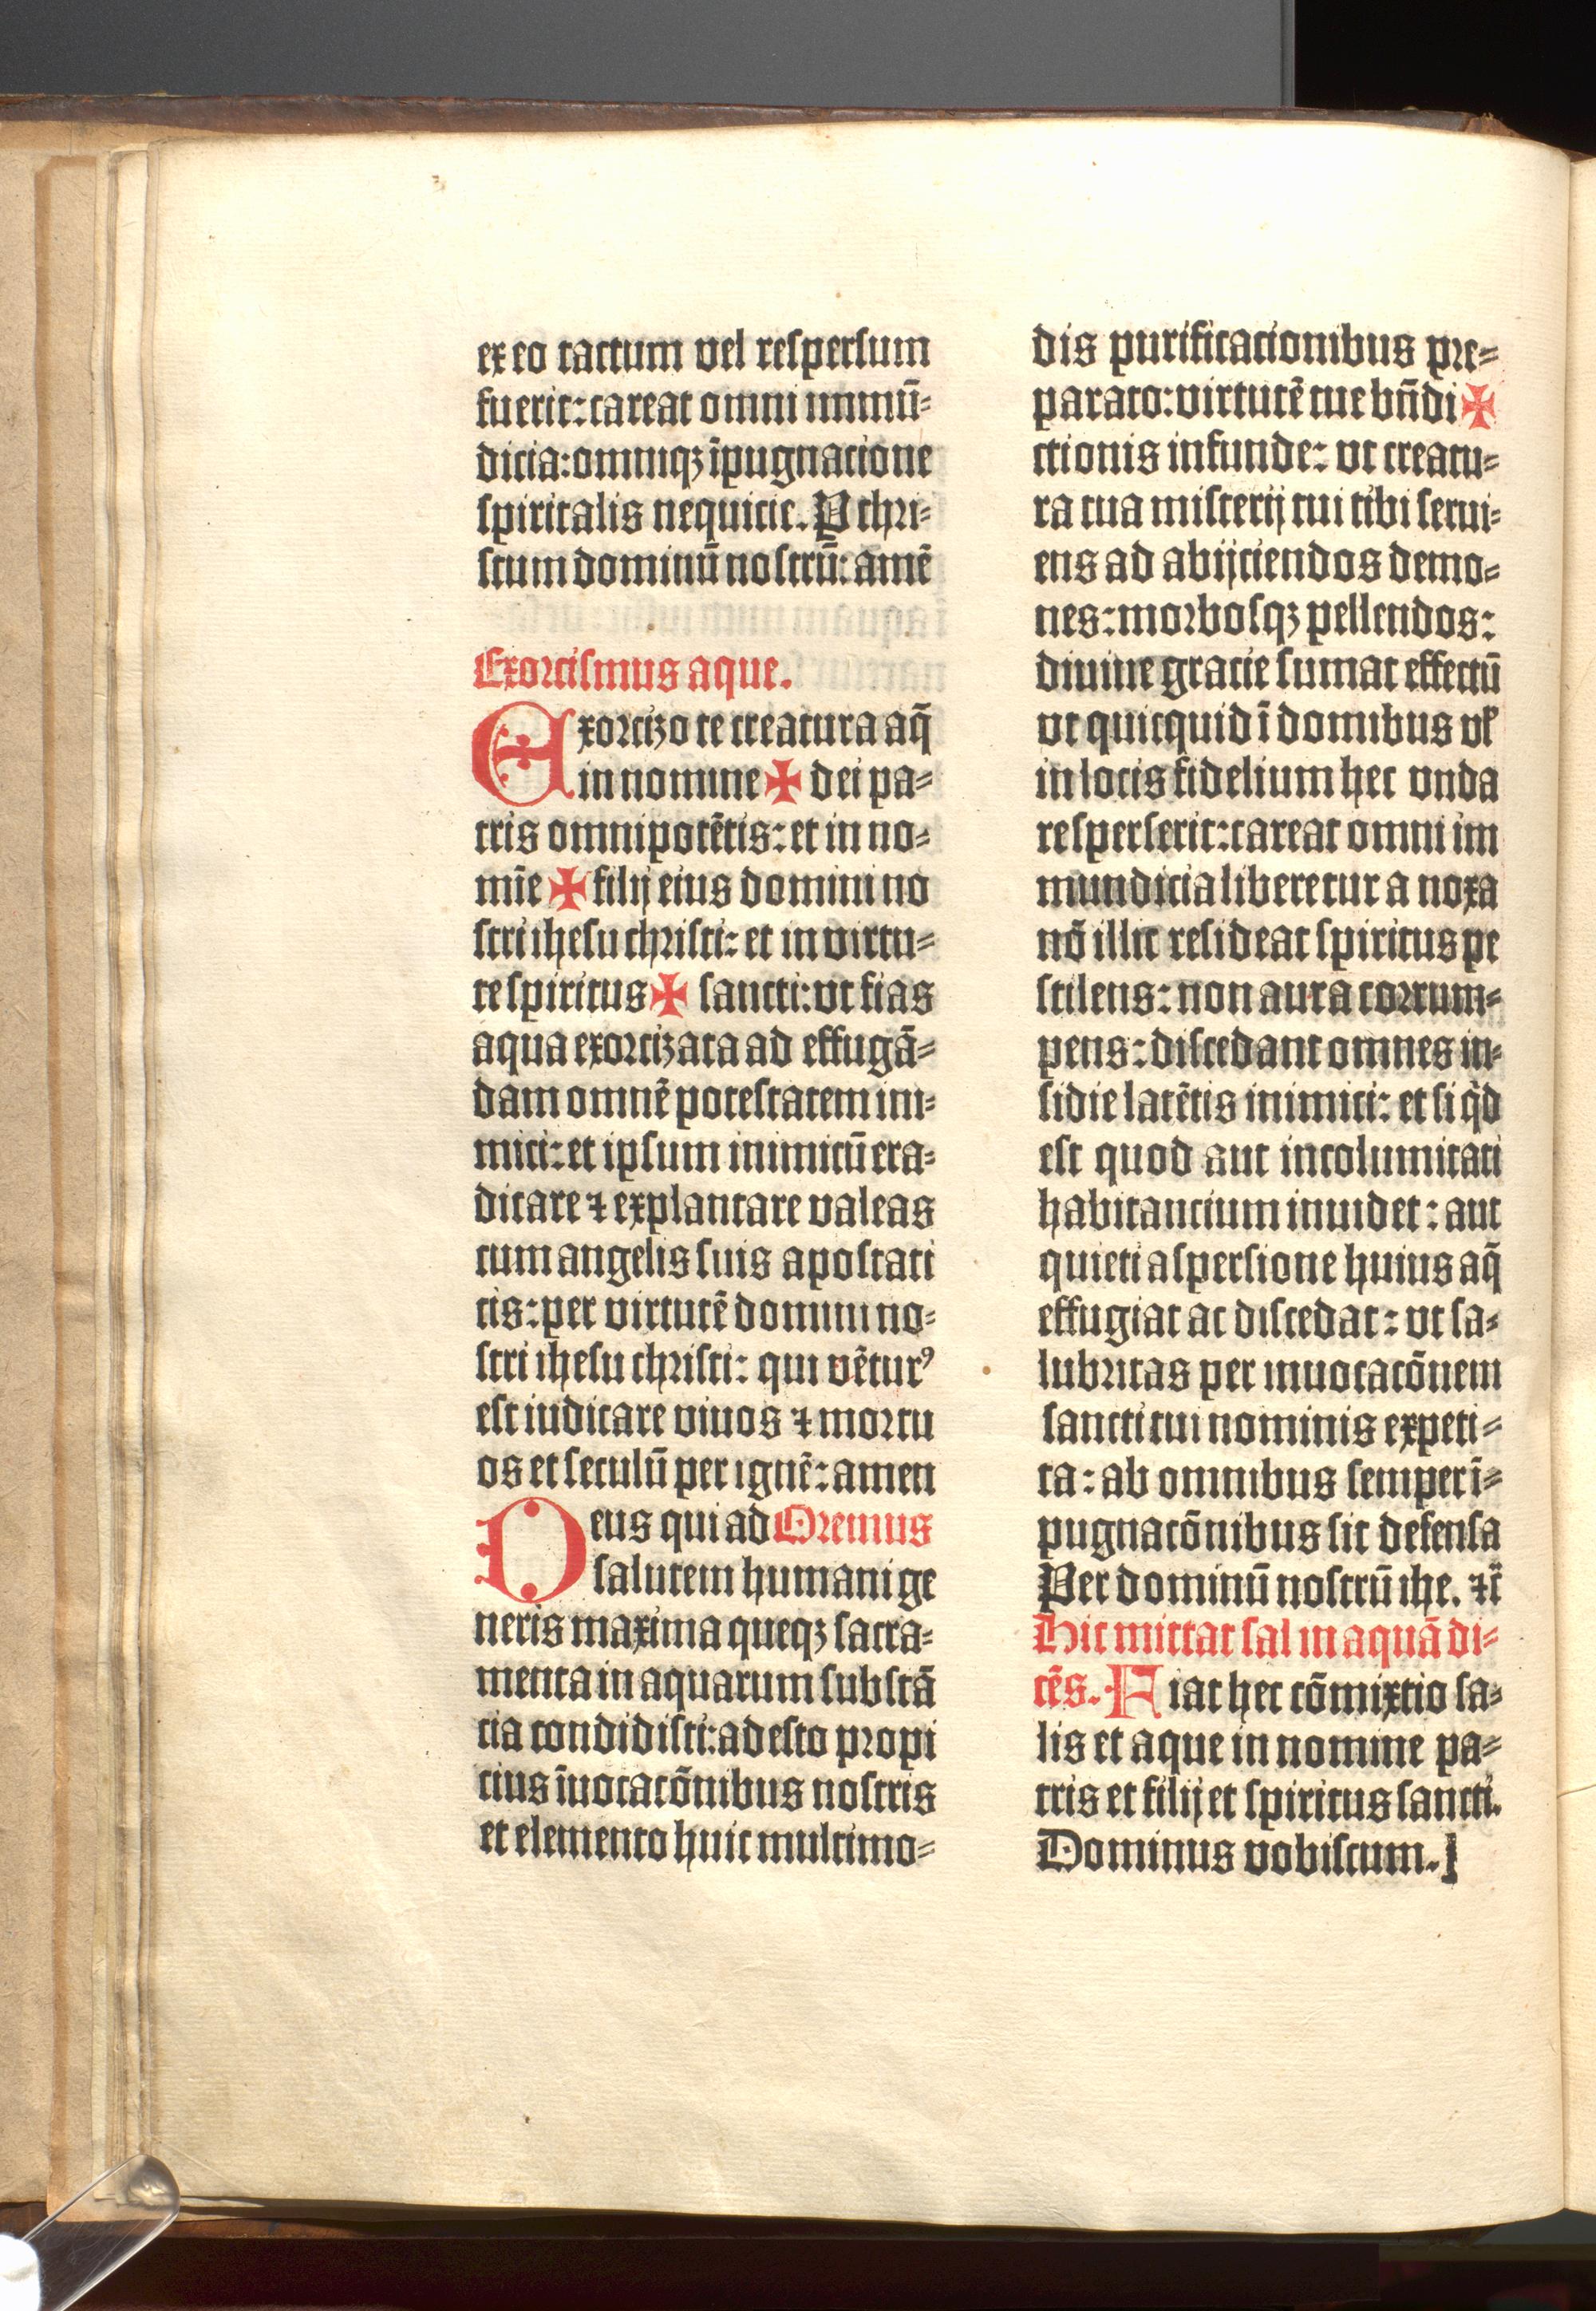 ex eo tactum vel reſperſum
fuerit: careat omni immū⸗
dicia: omniqꝫ īpugnacione
ſpiritalis nequicie. P chri⸗
ſtum dominū noſtrū: amē
Exorciſmus aque.
Exorcizo te creatura aq̄
in nomine ✠ dei pa⸗
tris omnipotētis: et in no⸗
mīe ✠ filij eius domini no
ſtri iheſu chriſti: et in virtu⸗
te ſpiritus ✠ ſancti: vt fias
aqua exorcizata ad effugā⸗
dam omnē poteſtatem ini⸗
mici: et ipſum inimicū era⸗
dicare ⁊ explantare valeas
cum angelis ſuis apoſtati
cis: per virtutē domini no⸗
ſtri iheſu chriſti: qui vētur⁹
eſt iudicare viuos ⁊ mortu
os et ſeculū per ignē: amen
Deus qui ad Oremus
ſalutem humani ge
neris maxima queqꝫ ſacra⸗
menta in aquarum ſubſtā
cia condidiſti: adeſto propi
cius īuocacōnibus noſtris
et elemento huic multimo⸗
dis purificacionibus pre⸗
parato: virtutē tue bn̄di ✠
ctionis infunde: vt creatu⸗
ra tua miſterij tui tibi ſerui⸗
ens ad abijciendos demo⸗
nes: morboſqꝫ pellendos:
diuine gracie ſumat effectū
vt quicquid ī domibus vł
in locis fidelium hec vnda
reſperſerit: careat omni im
mundicia liberetur a noxa
nō illic reſideat ſpiritus pe
ſtilens: non aura corrum⸗
pens: diſcedant omnes in⸗
ſidie latētis inimici: et ſi qͥd
eſt quod aut incolumitati
habitancium inuidet: aut
quieti aſperſione huius aq̄
effugiat ac diſcedat: vt ſa⸗
lubritas per inuocacōnem
ſancti tui nominis expeti⸗
ta: ab omnibus ſemper ī⸗
pugnacōnibus ſit defenſa
Per dominū noſtrū ihe. ⁊c̄
Hic mittat ſal in aquā di⸗
cēs. Fiat hec cōmixtio ſa⸗
lis et aque in nomine pa⸗
tris et filij et ſpiritus ſancti.
Dominus vobiſcum.]